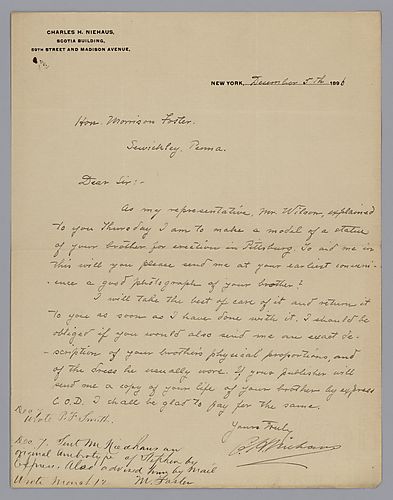 CHARLES H. NIEHAUS,
SCOTIA BUILDING,
59TH STREET AND MADISON AVENUE,
NEW YORK, December 5th 1896
Hon. Morrison Foster.
Sewickley, Penna.
Dear Sir:-
As my representative, Mr. Wilson, explained
to you Thursday I am to make a model of a statue
of your brother for erection in Pittsburg. To aid me in
this will you please send me at your earliest conveni-
ence a good photograph of your brother?
I will take the best of care of it and return it
to you as soon as I have done with it. I should be
obliged if you would also send me an exact de-
scription of your brothers physical proportions, and
of the dress he usually wore. If your publisher will
send me a copy of your life of your brother by express
C.O.D. I shall be glad to pay for the same.
Yours truly,
C. H. Niehaus
Wrote P.F. Smith.
Dec 7. Sent Mr Niedhaus an
original ambrotype of Stephen by
Express. Also advised him by Mail
M. Foster
Wrote